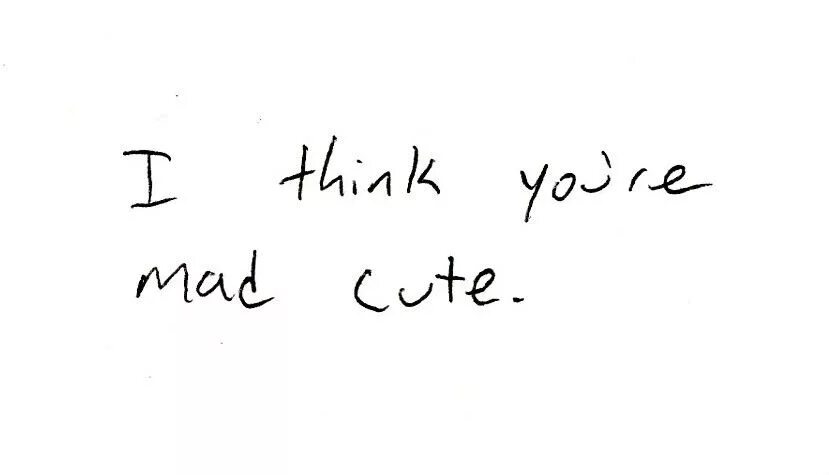 I think you're
mad cute.